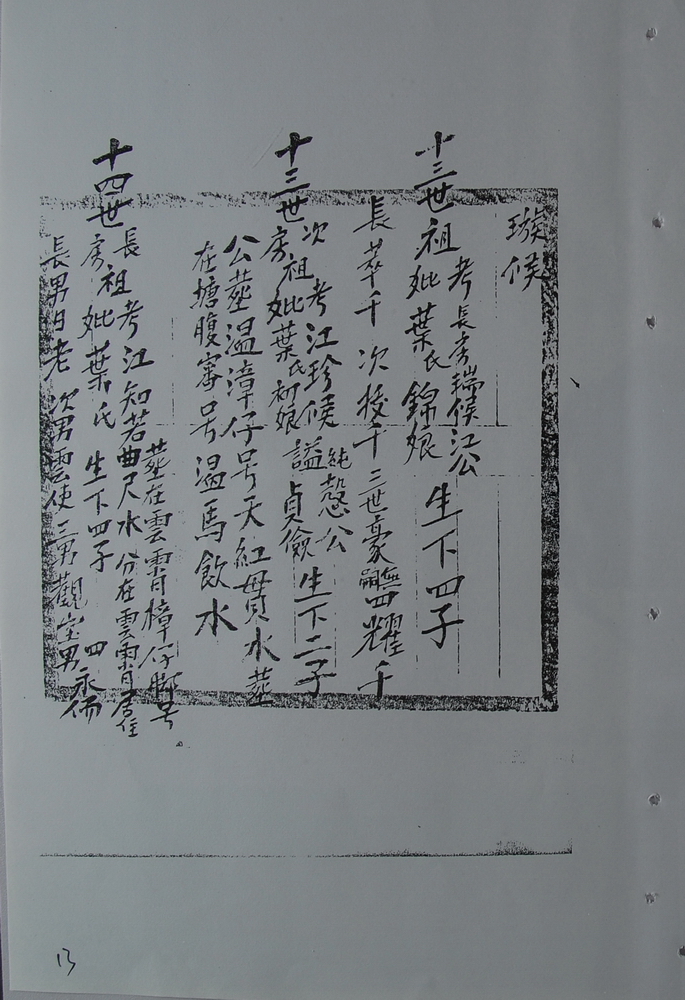 璇候
十三世祖考長房瑞候江公
妣葉氏錦娘 生下四子
長萃千 次授千 三世豪無嗣 四耀千
十三世次房祖考江珍候純愨公
妣葉氏初娘謚貞儉生下二子
公塟温漳仔号天紅貫水塟
在塘腹窨号温馬飲水
十四世長房祖考江知若塟在雲霄樟仔脚号
曲尺水 分在雲霄居住
妣葉氏 生下四子
長男日老 次男雲使 三男觀宝 四男永佈
13